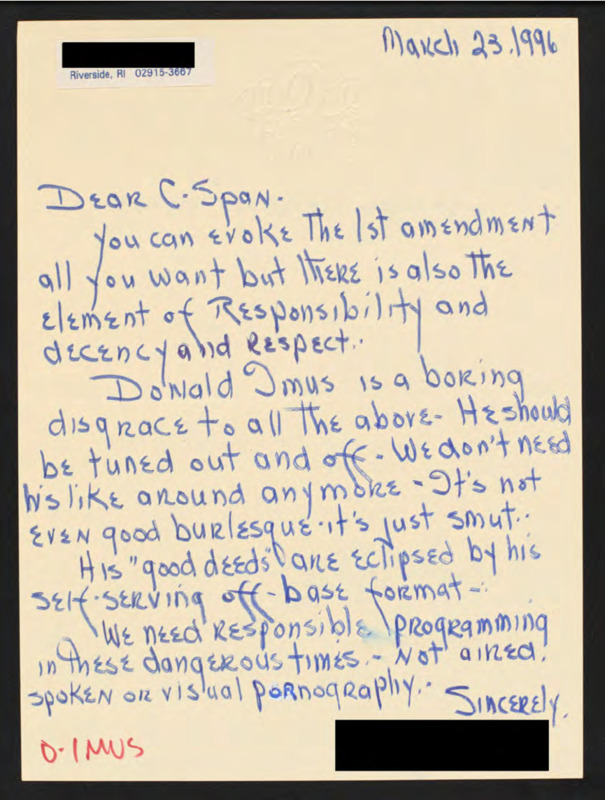 March 23, 1996
Riverside, RI 02915-3667
Dear C-Span.
You can evoke the 1st amendment
all you want but there is also the
element of Responsibility and
decency and respect..
Donald Imus is a boring
disgrace to all the above- He should
be tuned out and off- We don't need
his like around anymore - It's not
even good burlesque - it's just smut..
His "good deeds" are eclipsed by his
self-serving off-base format-.
We need responsible programming
in these dangerous times.- Not aired,
spoken or visual pornography..
Sincerely,
D-IMUS